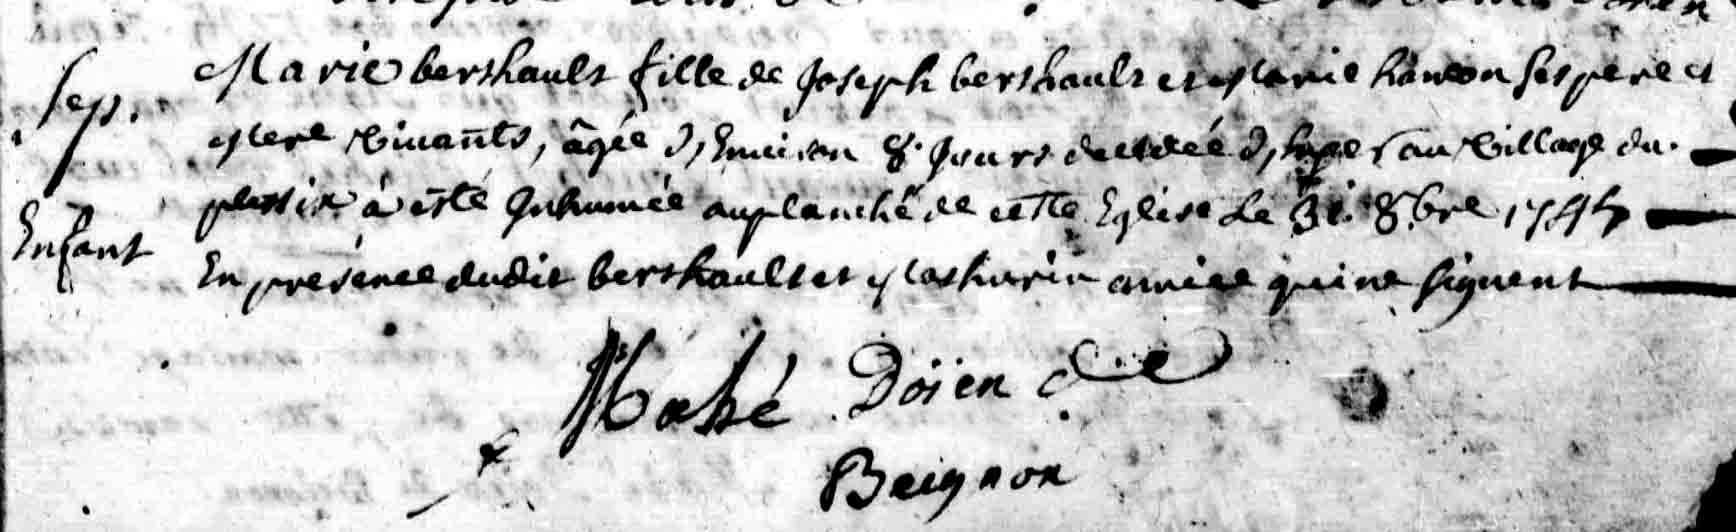 Sep.
Enfant
Marie bershault fille de Joseph bershault et Marie hamon ses pere et
Mere vivants, âgée d'Environ 8. Jours decedée d'hyer au village du
plessix à esté Inhumée au planché de cette Eglise Le 31. 8.bre
En présence dudit bershault et Mathurin amice qui ne signent
Mahé Doïen
Beignon